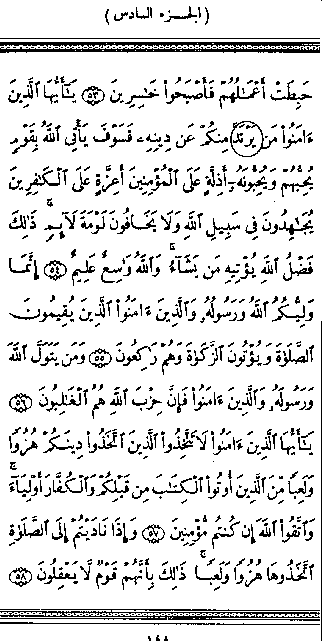 (الجزء السادس)
حَبِطَتْ أَعْمَٰلُهُمْ فَأَصْبَحُوا۟ خَٰسِرِينَ ٥٣ يَٰٓأَيُّهَا ٱلَّذِينَ
ءَامَنُوا۟ مَن يَرْتَدَّ مِنكُمْ عَن دِينِهِۦ فَسَوْفَ يَأْتِى ٱللَّهُ بِقَوْمٍ
يُحِبُّهُمْ وَيُحِبُّونَهُۥٓ أَذِلَّةٍ عَلَى ٱلْمُؤْمِنِينَ أَعِزَّةٍ عَلَى ٱلْكَٰفِرِينَ
يُجَٰهِدُونَ فِى سَبِيلِ ٱللَّهِ وَلَا يَخَافُونَ لَوْمَةَ لَآئِمٍ ۚ ذَٰلِكَ
فَضْلُ ٱللَّهِ يُؤْتِيهِ مَن يَشَآءُ ۚ وَٱللَّهُ وَٰسِعٌ عَلِيمٌ ٥٤ إِنَّمَا
وَلِيُّكُمُ ٱللَّهُ وَرَسُولُهُۥ وَٱلَّذِينَ ءَامَنُوا۟ ٱلَّذِينَ يُقِيمُونَ
ٱلصَّلَوٰةَ وَيُؤْتُونَ ٱلزَّكَوٰةَ وَهُمْ رَٰكِعُونَ ٥٥ وَمَن يَتَوَلَّ ٱللَّهَ
وَرَسُولَهُۥ وَٱلَّذِينَ ءَامَنُوا۟ فَإِنَّ حِزْبَ ٱللَّهِ هُمُ ٱلْغَٰلِبُونَ ٥٦
يَٰٓأَيُّهَا ٱلَّذِينَ ءَامَنُوا۟ لَا تَتَّخِذُوا۟ ٱلَّذِينَ ٱتَّخَذُوا۟ دِينَكُمْ هُزُوًا
وَلَعِبًا مِّنَ ٱلَّذِينَ أُوتُوا۟ ٱلْكِتَٰبَ مِن قَبْلِكُمْ وَٱلْكُفَّارَ أَوْلِيَآءَ ۚ
وَٱتَّقُوا۟ ٱللَّهَ إِن كُنتُم مُّؤْمِنِينَ ٥٧ وَإِذَا نَادَيْتُمْ إِلَى ٱلصَّلَوٰةِ
ٱتَّخَذُوهَا هُزُوًا وَلَعِبًا ۚ ذَٰلِكَ بِأَنَّهُمْ قَوْمٌ لَّا يَعْقِلُونَ ٥٨
١٤٨